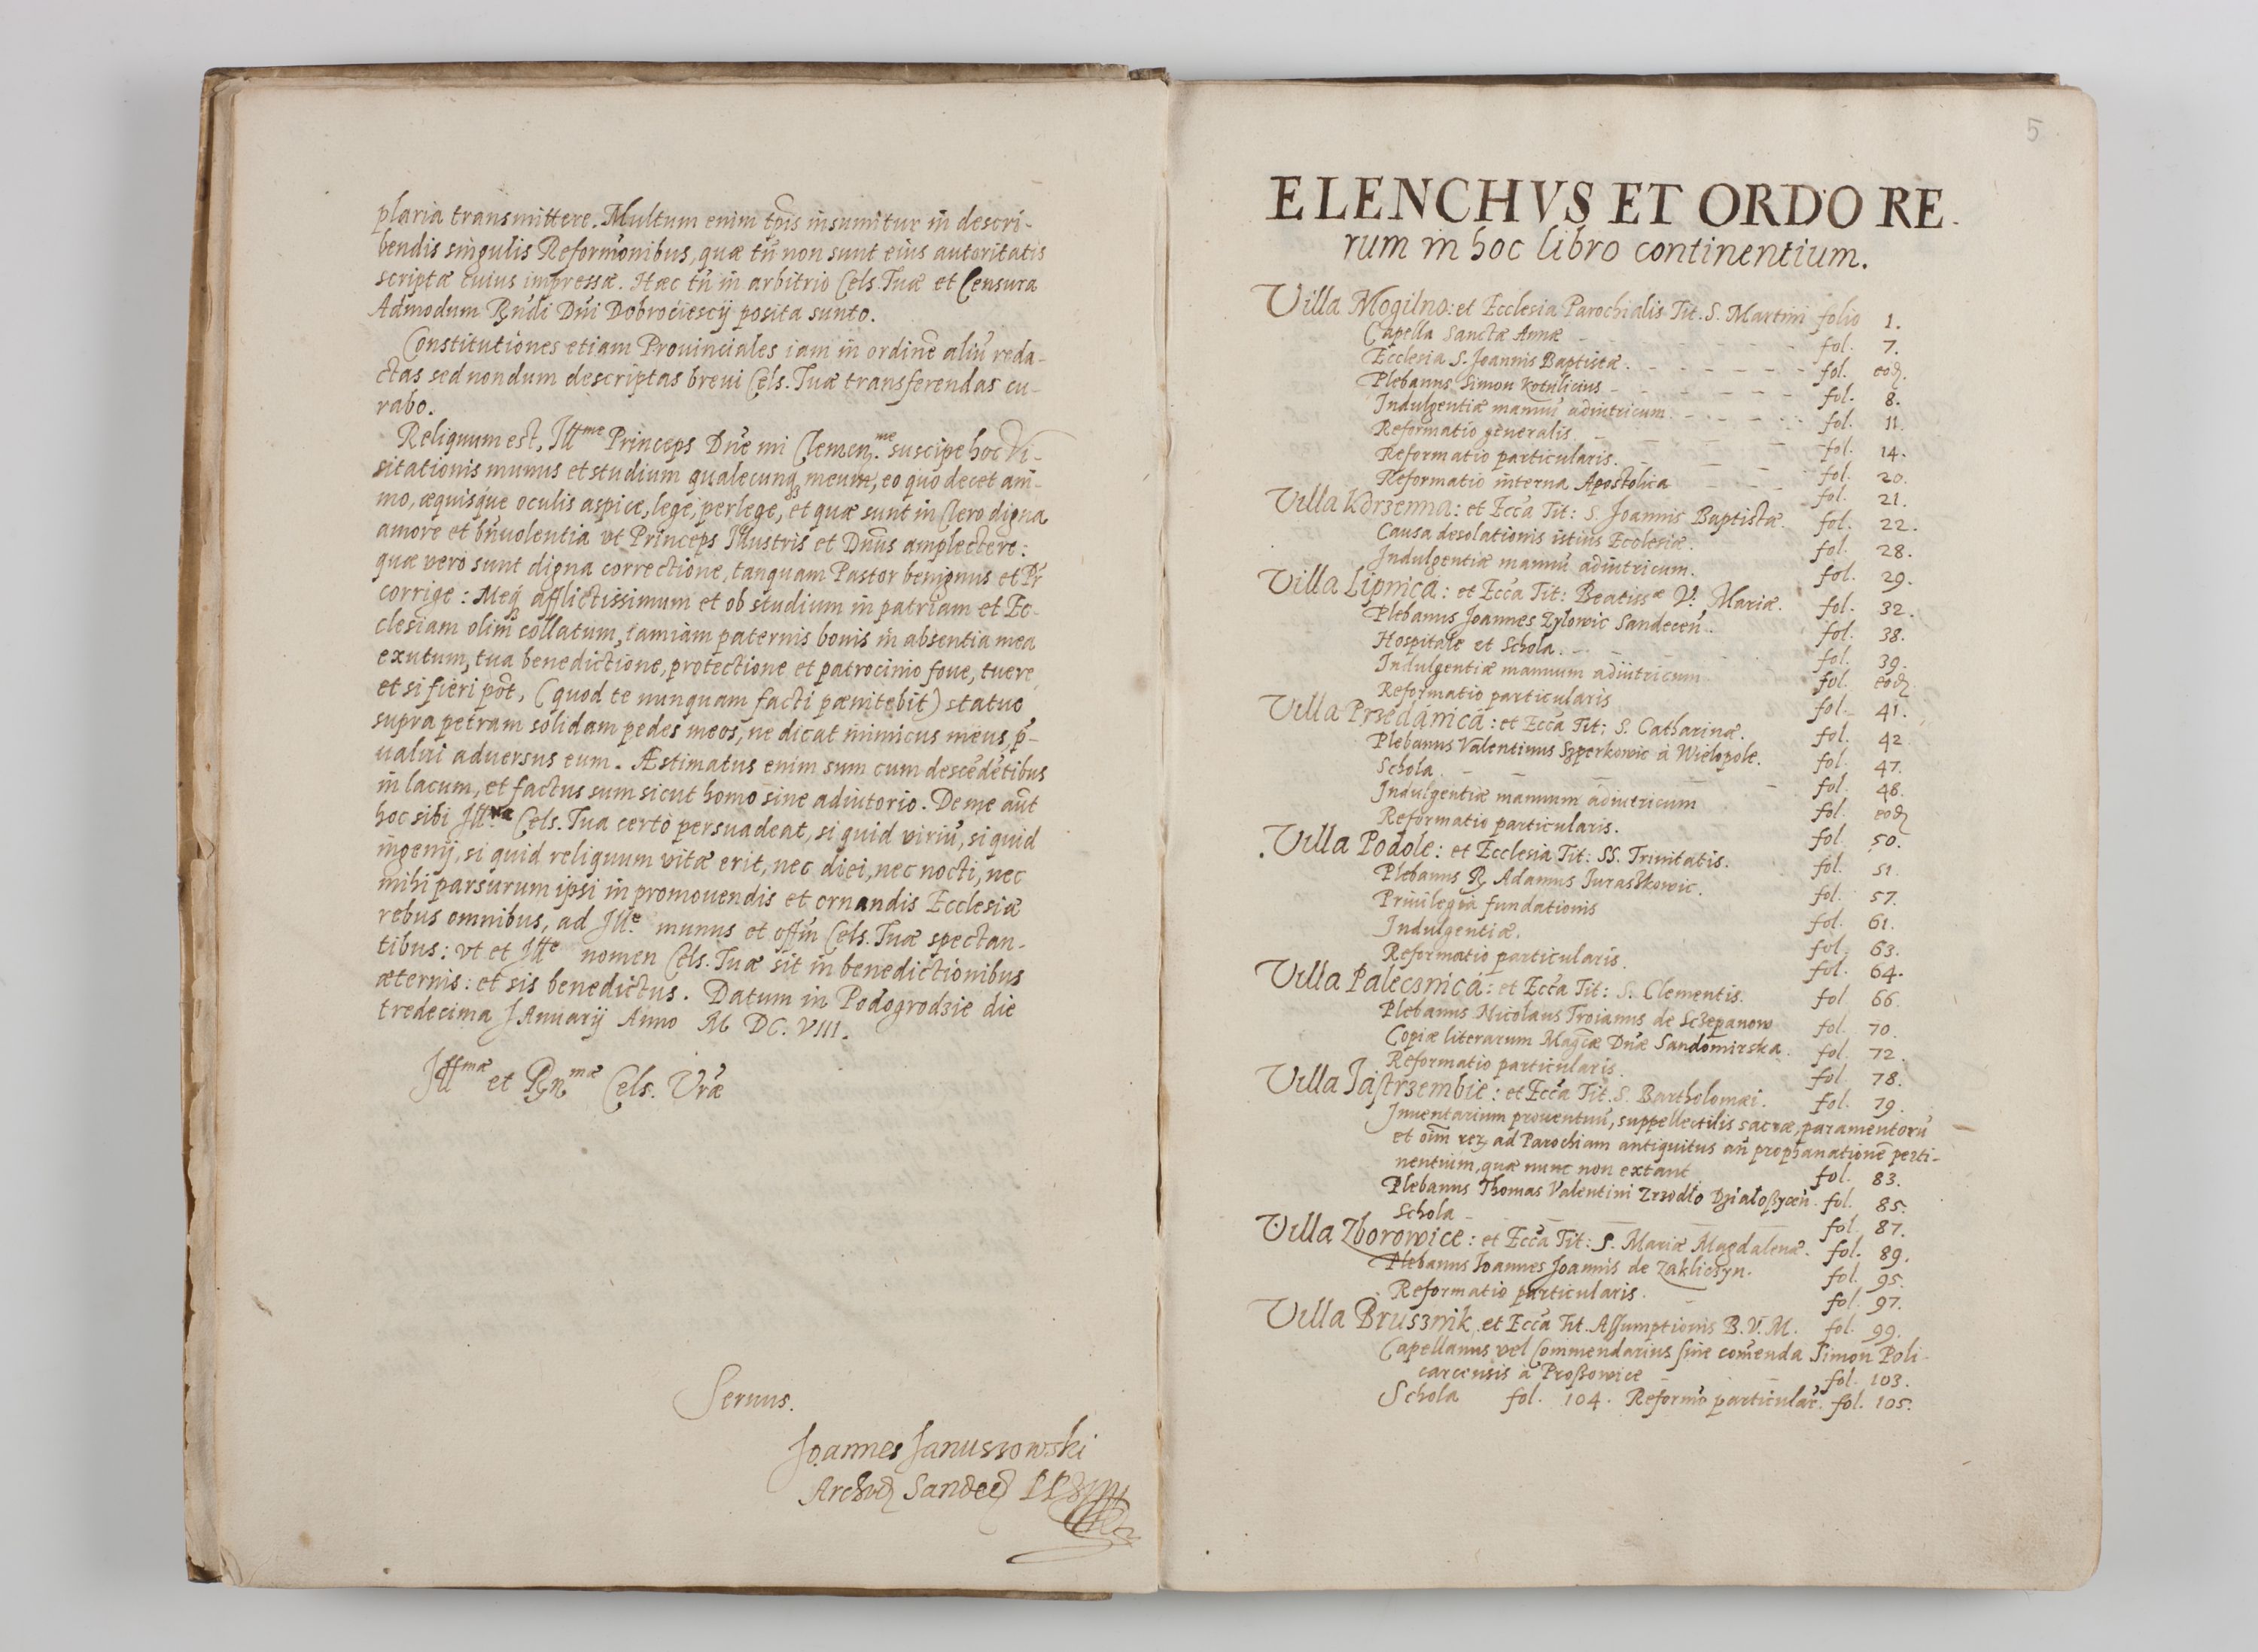 plaria transmittere. Multum enim tp̃is insumitur in descri-
bendis singulis Reformõnibus, quæ tñ non sunt eius autoritatis
scriptæ cuius impressæ. Hæc tñ in arbitrio Cels. Tuæ et Censura
Admodum Rñdi Dñi Dobrociescij posita sunto.
Constitutiones etiam Prouinciales iam in ordinẽ aliũ reda-
ctas sed nondum descriptas breui Cels. Tuæ transferendas cu-
rabo.
Reliquum est, Illme Princeps Dñe mi Clemen.me suscipe hoc Vi-
sitationis munus et studium qualecunq meum, eo quo decet ani-
mo, æquisque oculis aspice, lege, perlege, et quæ sunt in Clero digna
amore et bñuolentia vt Princeps Illustris et Dñus amplectere:
quæ vero sunt digna correctione, tanquam Pastor benignus et Pr̃
corrige: Meq afflictissimum et ob studium in patriam et Ec-
clesiam olim collatum, tamiam paternis bonis in absentia mea
exutum, tua benedictione, protectione et patrocinio foue, tuere
et si fieri põt, (quod te nunquam facti pænitebit) statuo
supra petram solidam pedes meos, ne dicat inimicus meus, p̃-
ualui aduersus eum. Æstimatus enim sum cum descẽdẽtibus
in lacum, et factus sum sicut homo sine adiutorio. De me aũt
hoc sibi Ill.ma Cels. Tua certò persuadeat, si quid viriũ, si quid
ingenij, si quid reliquum vitæ erit, nec diei, nec nocti, nec
mihi parsurum ipsi in promouendis et ornandis Ecclesiæ
rebus omnibus, ad Ill.e munus et offm̃ Cels. Tuæ spectan-
tibus: vt et Ill.e nomen Cels. Tuæ sit in benedictionibus
æternis: et sis benedictus. Datum in Podogrodzie die
tredecima Januarij Anno M DC. VIII.
Illmæ et Rn̄mæ Cels. Vr̃æ
Seruus.
Joannes Januszowski
Archid Sandec
5
ELENCHVS ET ORDO RE-
rum in hoc libro continentium.
Villa Mogilno: et Ecclesia Parochialis Tit. S. Martini folio 1.
Capella Sanctæ Annæ fol. 7.
Ecclesia S. Joannis Baptistæ. fol. eod.
Plebanus Simon Kotulicius fol. 8.
Indulgentiæ manuũ adiutricum. fol. 11.
Reformatio generalis fol. 14.
Reformatio particularis. fol. 20.
Reformatio interna Apostolica fol. 21.
Villa Korzenna: et Ecc̃a Tit: S. Joannis Baptistæ. fol. 22.
Causa desolationis istius Ecclesiæ. fol. 28.
Indulgentiæ manuũ adiutricum. fol. 29.
Villa Lipnica: et Ecc̃a Tit: Beatissæ V. Mariæ. fol. 32.
Plebanus Joannes Zylowic Sandeceñ. fol. 38.
Hospitale et Schola. fol. 39.
Indulgentiæ manuum adiutricum fol. eod.
Reformatio particularis fol. 41.
Villa Przedánicá: et Ecc̃a Tit: S. Catharinæ. fol. 42
Plebanus Valentinus Szperkowic à Wielopole. fol. 47.
Schola. fol. 48.
Indulgentiæ manuum adiutricum fol. eod
Reformatio particularis. fol. 50.
Villa Podole: et Ecclesia Tit: SS. Trinitatis. fol. 51.
Plebanus R Adamus Juraszkowic. fol. 57.
Priuilegia fundationis fol. 61.
Indulgentiæ. fol. 63.
Reformatio particularis. fol. 64.
Villa Palecznicá: et Ecc̃a Tit: S. Clementis. fol. 66.
Plebanus Nicolaus Troianus de Sczepanow fol. 70.
Copiæ literarum Mag̃cæ Dñæ Sandomirska. fol. 72.
Reformatio particularis. fol. 78.
Villa Jástrzembie: et Ecc̃a Tit. S. Bartholomæi. fol. 79.
Inuentarium prouentuũ, suppellectilis sacræ, paramentorũ
et oĩm rerũ ad Parochiam antiquitus añ prophanationẽ perti-
nentium, quæ nunc non extant fol. 83.
Plebanus Thomas Valentini Zrzodło Dzialoszyceñ. fol. 85.
Schola fol. 87.
Villa Zborowice: et Ecc̃a Tit: S. Mariæ Magdalenæ. fol. 89.
Plebanus Joannes Joannis de Zakliczyn. fol. 95.
Reformatio particularis. fol. 97.
Villa Bruśznik, et Ecc̃a Tit. Assumptionis B.V.M. fol. 99.
Capellanus vel Commendarius siue comẽnda Simon Poli-
carcensis à Proszowice fol. 103.
Schola fol. 104. Reformõ particulař. fol. 105.